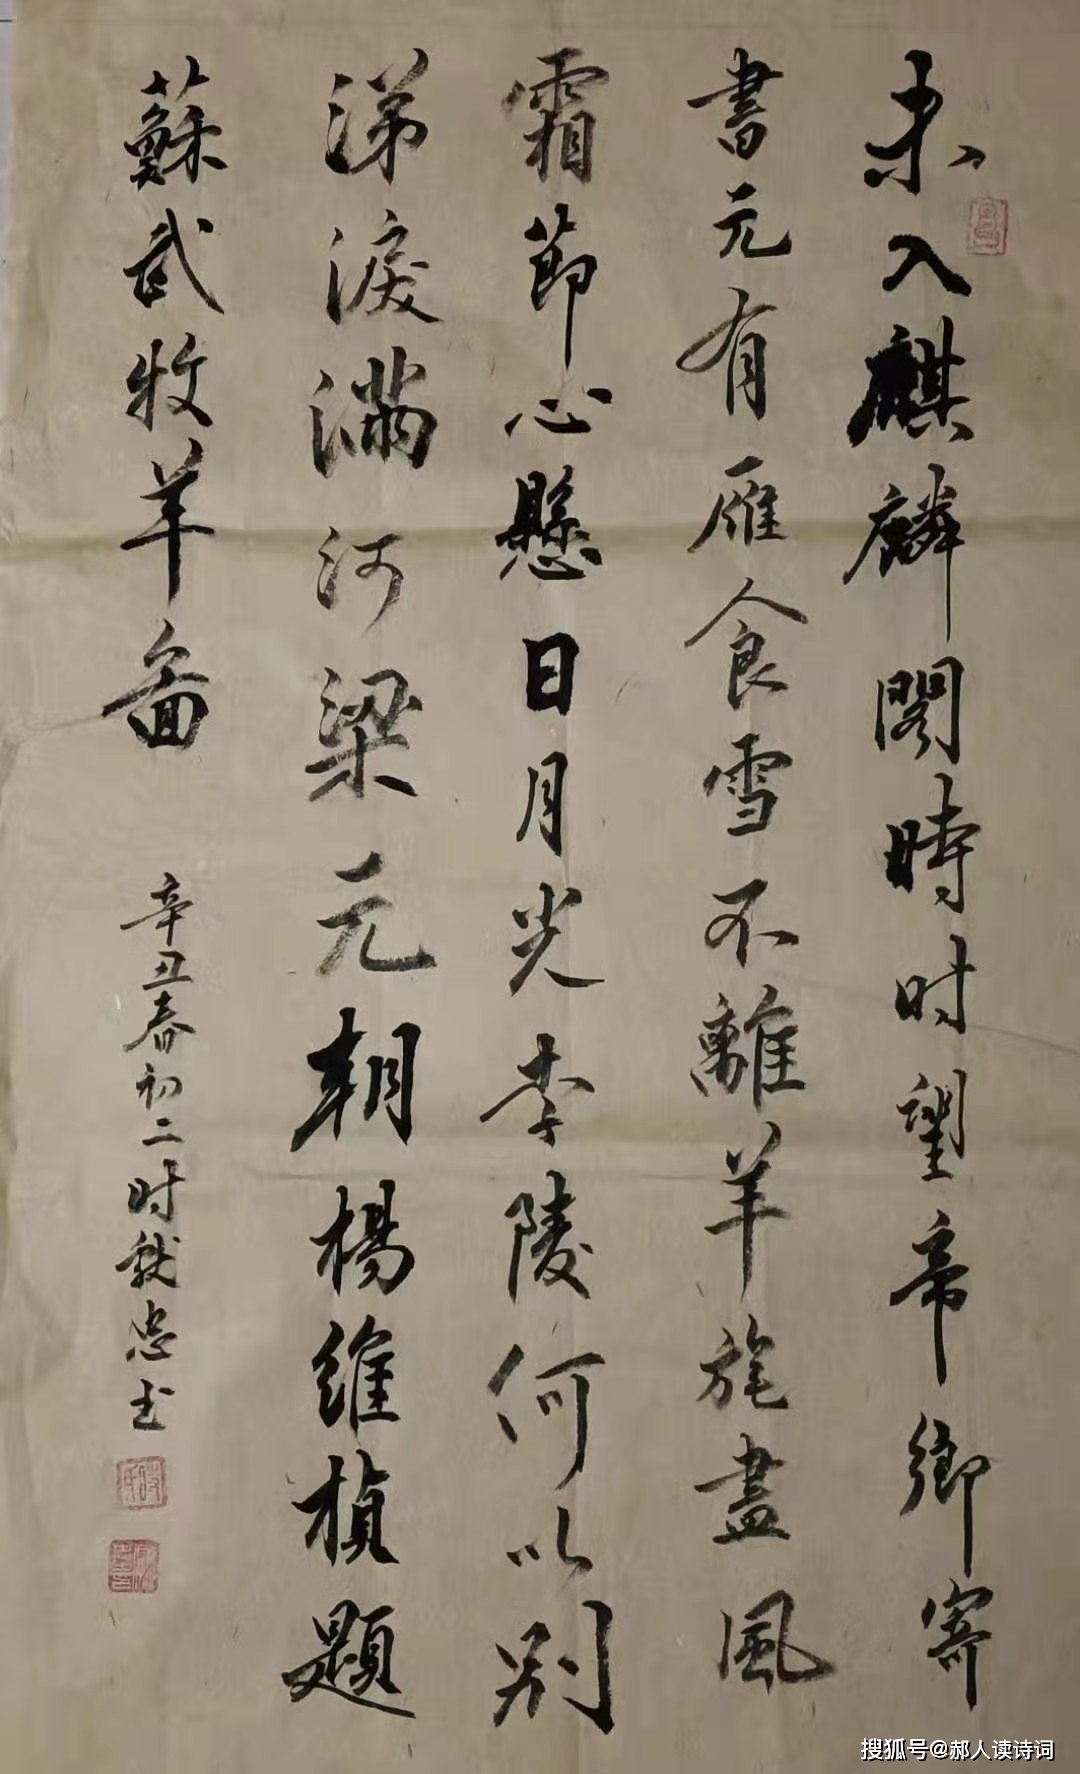 未入麒麟閣時时望帝鄉寄
書元有雁食雪不離羊旄盡風
霜節心懸日月光李陵何以别
涕淚滿河梁元朝楊維楨題
蘇武牧羊畬
辛丑春初二时献忠书
搜狐号@郝人读诗词